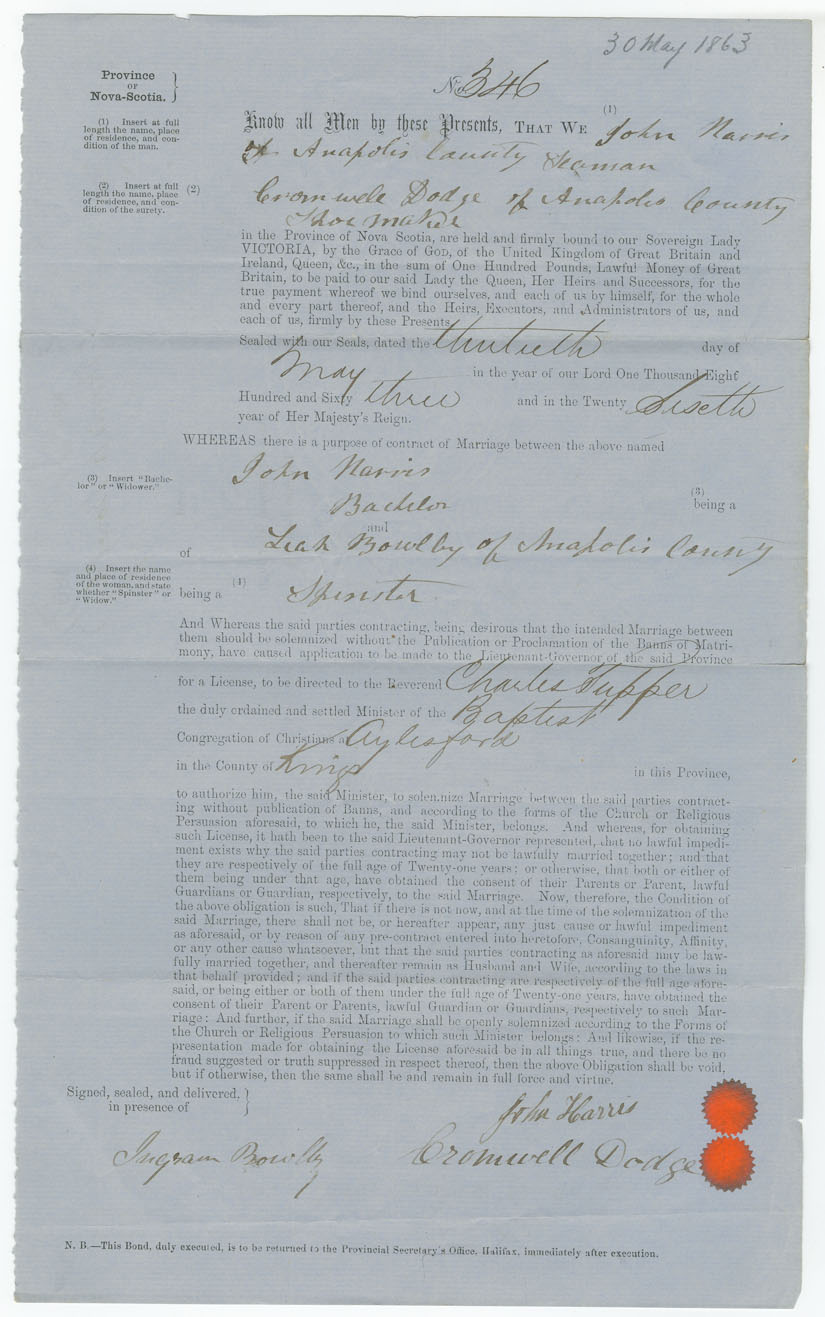 30 May 1863
Province
OF
Nova-Scotia.
No. 346
(1) Insert at full
length the name, place
of residence, and con-
dition of the man.
(1)
Know all Men by these Presents, THAT WE John Harris
of Anapolis County Seaman
(2) Insert at full
length the name, place
of residence, and con-
dition of the surety.
(2) Cromwele Dodge of Anapolis County
Shoe maker
in the Province of Nova Scotia, are held and firmly bound to our Sovereign Lady
VICTORIA, by the Grace of GOD, of the United Kingdom of Great Britain and
Ireland, Queen, &c., in the sum of One Hundred Pounds, Lawful Money of Great
Britain, to be paid to our said Lady the Queen, Her Heirs and Successors, for the
true payment whereof we bind ourselves, and each of us by himself, for the whole
and every part thereof, and the Heirs, Executors, and Administrators of us, and
each of us, firmly by these Presents.
Sealed with our Seals, dated the thirtieth day of
May in the year of our Lord One Thousand Eight
Hundred and Sixty three and in the Twenty Sixeth
year of Her Majesty's Reign.
WHEREAS there is a purpose of contract of Marriage between the above named
John Harris
(3) Insert "Bache-
lor" or "Widower."
(3)
Bachelor being a
and
of Leah Bowlby of Anapolis County
(4) Insert the name
and place of residence
of the woman, and state
whether "Spinster" or
"Widow."
being a (4) Spinster
And Whereas the said parties contracting, being desirous that the intended Marriage between
them should be solemnized without the Publication or Proclamation of the Banns of Matri-
mony, have caused application to be made to the Lieutenant-Governor of the said Province
for a License, to be directed to the Reverend Charles Tupper
the duly ordained and settled Minister of the Baptist
Congregation of Christians at Aylesford
in the County of Kings in this Province,
to authorize him, the said Minister, to solemnize Marriage between the said parties contract-
ing without publication of Banns, and according to the forms of the Church or Religious
Persuasion aforesaid, to which he, the said Minister, belongs. And whereas, for obtaining
such License, it hath been to the said Lieutenant-Governor represented, that no lawful impedi-
ment exists why the said parties contracting may not be lawfully married together; and that
they are respectively of the full age of Twenty-one years: or otherwise, that both or either of
them being under that age, have obtained the consent of their Parents or Parent, lawful
Guardians or Guardian, respectively, to the said Marriage. Now, therefore, the Condition of
the above obligation is such, That if there is not now, and at the time of the solemnization of the
said Marriage, there shall not be, or hereafter appear, any just cause or lawful impediment
as aforesaid, or by reason of any pre-contract entered into heretofore, Consanguinity, Affinity,
or any other cause whatsoever, but that the said parties contracting as aforesaid may be law-
fully married together, and thereafter remain as Husband and Wife, according to the laws in
that behalf provided; and if the said parties contracting are respectively of the full age afore-
said, or being either or both of them under the full age of Twenty-one years, have obtained the
consent of their Parent or Parents, lawful Guardian or Guardians, respectively to such Mar-
riage: And further, if the said Marriage shall be openly solemnized according to the Forms of
the Church or Religious Persuasion to which such Minister belongs: And likewise, if the re-
presentation made for obtaining the License aforesaid be in all things true, and there be no
fraud suggested or truth suppressed in respect thereof, then the above Obligation shall be void,
but if otherwise, then the same shall be and remain in full force and virtue.
Signed, sealed, and delivered,
in presence of
John Harris
Ingram Bowlby
Cromwell Dodge
N. B.—This Bond, duly executed, is to be returned to the Provincial Secretary's Office, Halifax, immediately after execution.